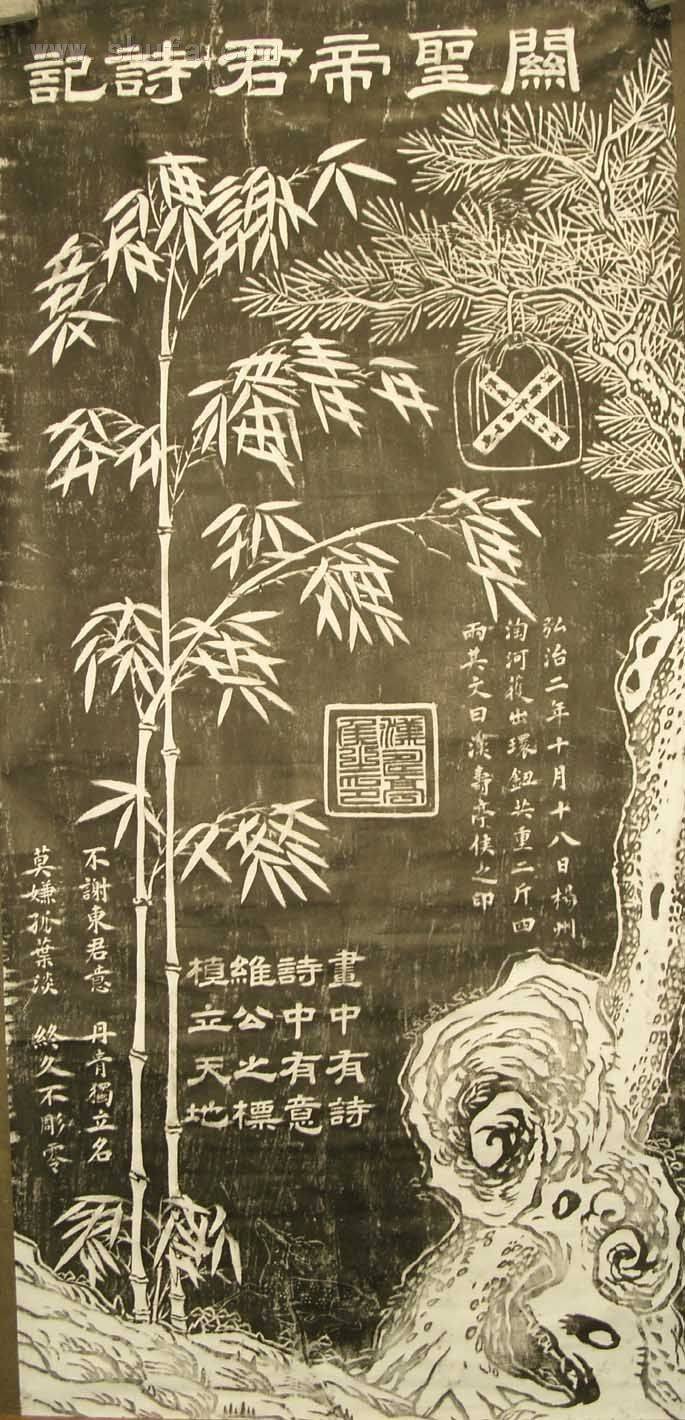 關聖帝君詩記
弘治二年十月十八日楊州
淘河獲出環鈕共重二斤四
兩其文曰漢壽亭侯之印
漢壽亭
侯之印
畫中有詩
詩中有意
維公之標
植立天地
不謝東君意 丹青獨立名
莫嫌孤葉淡 終久不彫零